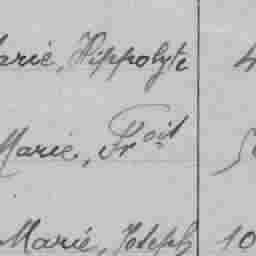 arie, Hippolyte 4
Marie, Fr.oit 5
Marie, Joseph 10